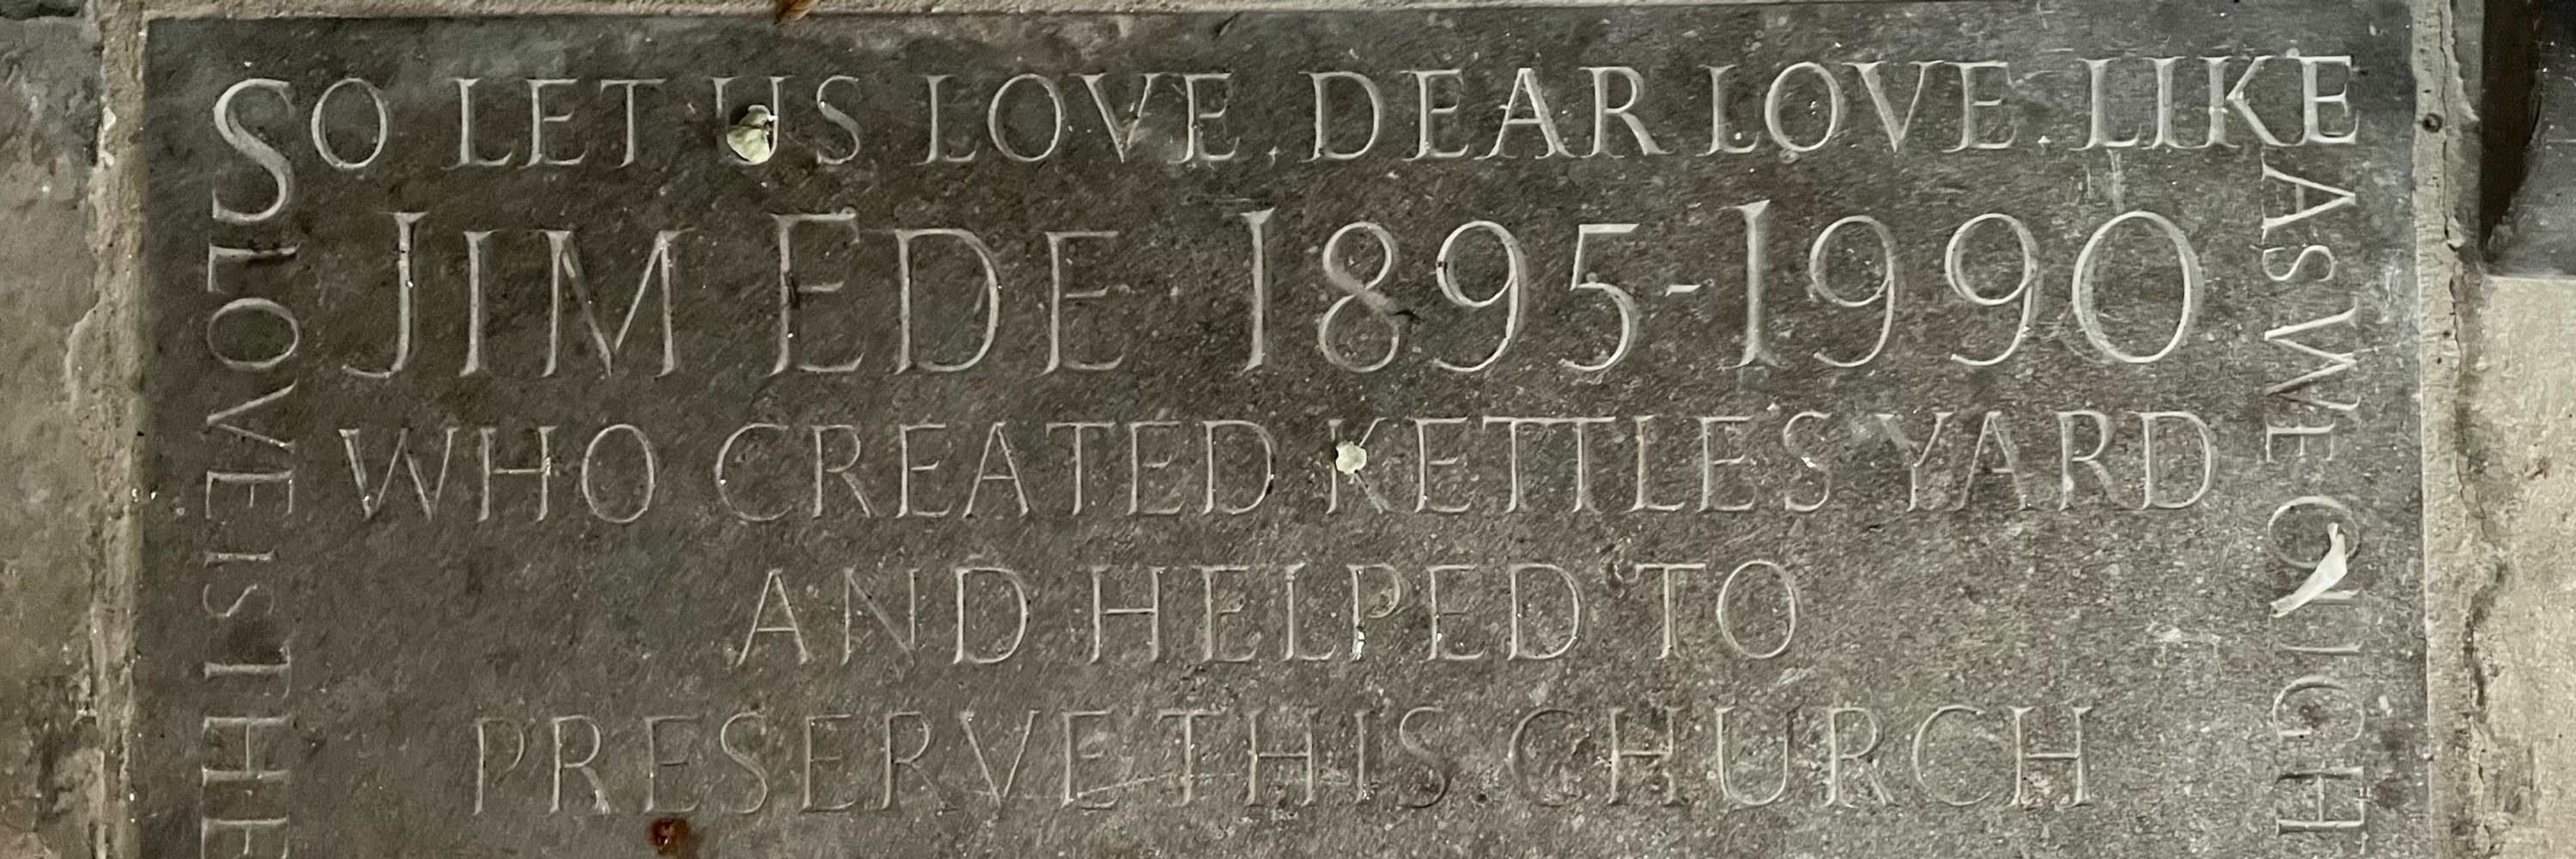 SO LET US LOVE, DEAR LOVE, LIKE
AS WE OUGHT
JIM EDE 1895-1990
WHO CREATED KETTLES YARD
AND HELPED TO
PRESERVE THIS CHURCH
LOVE IS THE